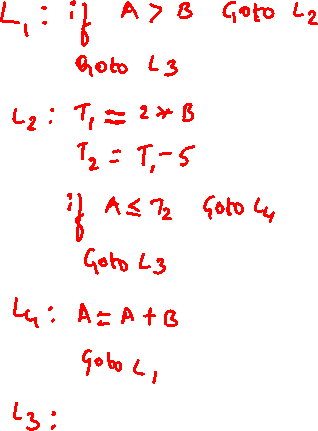 L₁: if A > B Goto L₂
Goto L3
L₂: T₁ = 2 * B
T₂ = T₁ - 5
if A ≤ T₂ Goto L₄
Goto L3
L₄: A = A + B
Goto L₁
L₃: